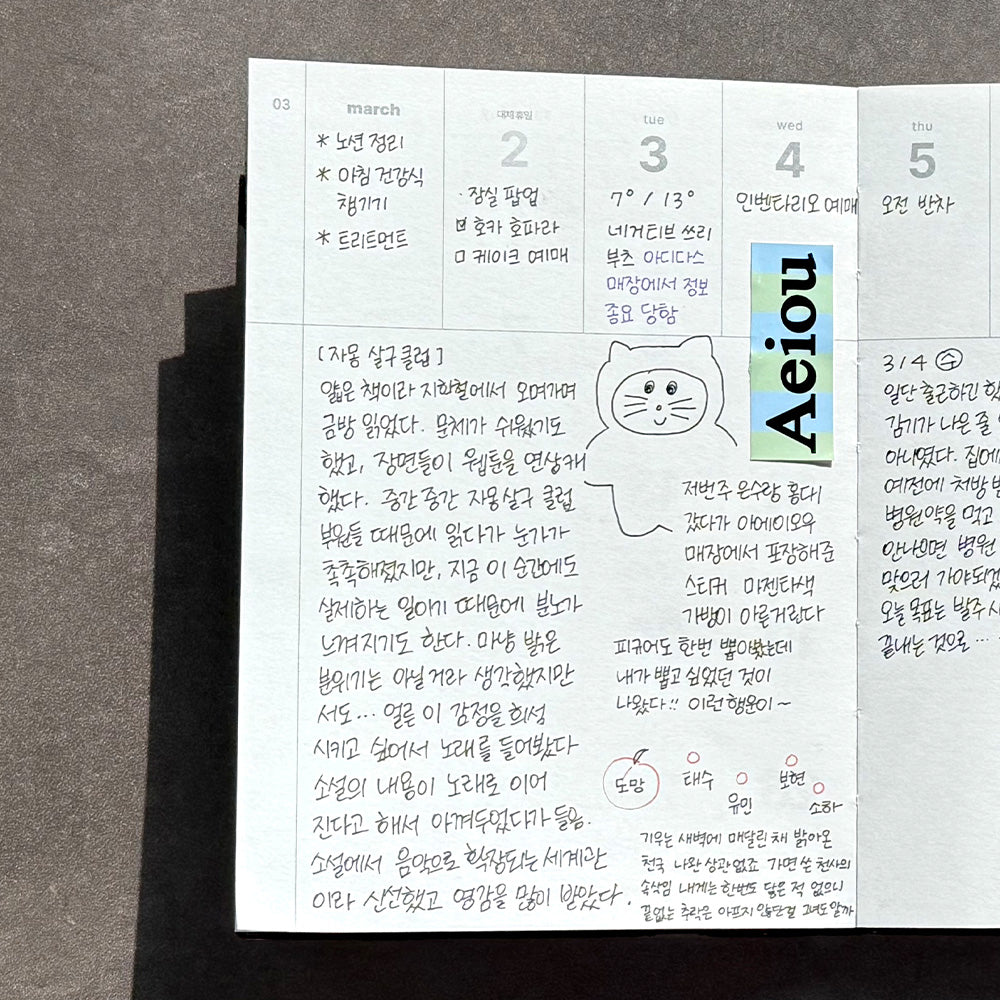 03
march
* 노션 정리
* 아침 건강식
챙기기
* 트리트먼트
대체휴일
2
· 잠실 팝업
☑ 호카 호파라
☐ 케이크 예매
tue
3
7° / 13°
네거티브 쓰리
부츠 아디다스
매장에서 정보
종요 당함
wed
4
인벤타리오 예매
Aeiou
thu
5
오전 반차
[자몽 살구 클럽]
얇은 책이라 지하철에서 오며가며
금방 읽었다. 문체가 쉬웠기도
했고, 장면들이 웹툰을 연상케
했다. 중간중간 자몽살구 클럽
부원들 때문에 읽다가 눈가가
촉촉해졌지만, 지금 이 순간에도
실제하는 일이기 때문에 분노가
느껴지기도 한다. 마냥 밝은
분위기는 아닐거라 생각했지만
서도... 얼른 이 감정을 희석
시키고 싶어서 노래를 들어봤다
소설의 내용이 노래로 이어
진다고 해서 아껴두었다가 들음.
소설에서 음악으로 확장되는 세계관
이라 신선했고 영감을 많이 받았다.
저번주 은수랑 홍대
갔다가 아에이오우
매장에서 포장해준
스티커 마젠타색
가방이 아른거린다
피규어도 한번 뽑아봤는데
내가 뽑고 싶었던 것이
나왔다!! 이런 행운이~
도망
태수
유민
보현
소하
기우는 새벽에 매달린 채 밝아온
천국 나완 상관 없죠 가면 쓴 천사의
속삭임 내게는 한번도 닿은 적 없으니
끝없는 추락은 아프지 않단걸 그녀도 알까
3/4 ㊌
일단 출근하긴 했
감기가 나은 줄
아니였다. 집에
예전에 처방
병원약을 먹고
안나으면 병원
맞으러 가야되겠
오늘 목표는 발주
끝내는 것으로...